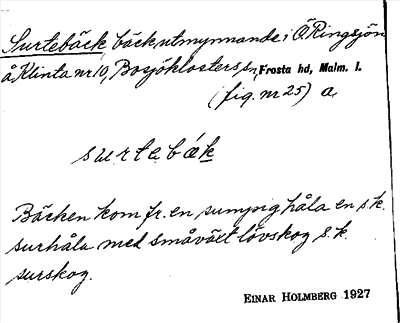 Surtebäck, bäck utmynnande i Ö. Ringsjön
å Klinta nr 10, Bosjöklosters sn, Frosta hd, Malm. l.
(fig. nr 25) a.
surtebäk
Bäcken kom fr. en sumpig håla en s.k.
surhåla med småväxt lövskog s.k.
surskog.
EINAR HOLMBERG 1927